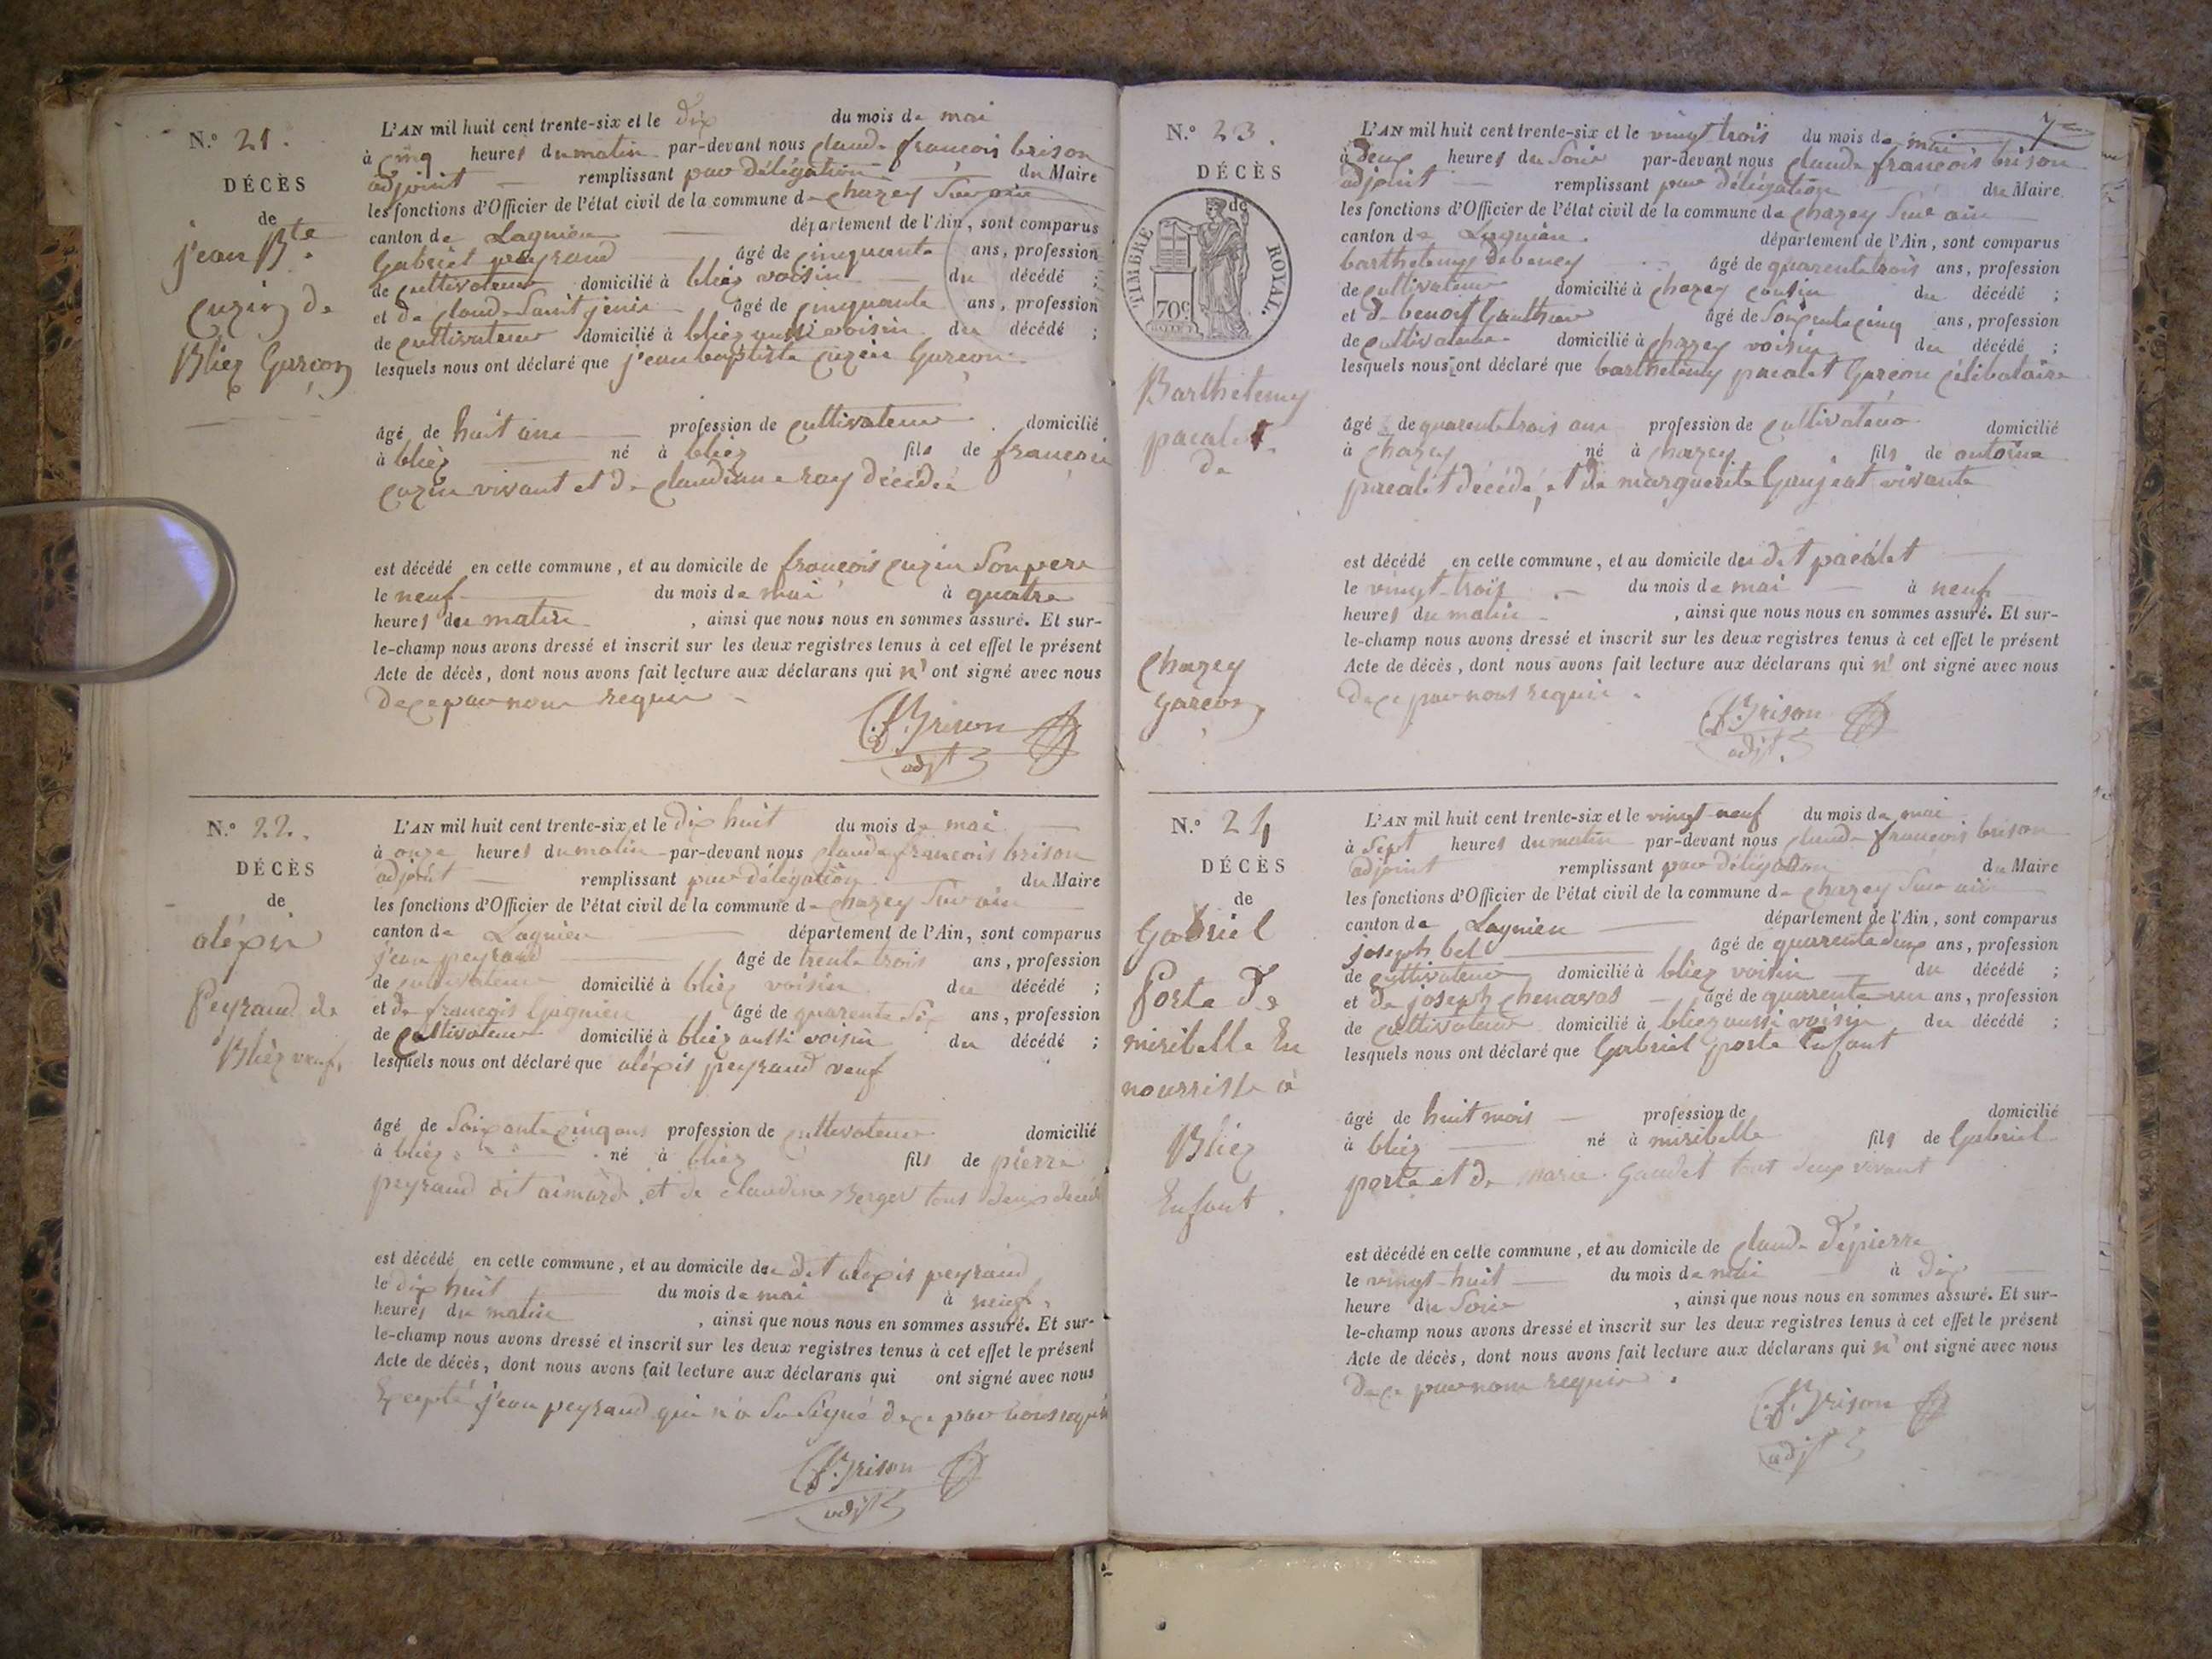 N.° 21.
DÉCÈS
de
jean Bte
cuzin de
Bliez Garcon
L'AN mil huit cent trente-six et le dix du mois de mai
à cinq heures du matin par-devant nous claude francois brison
adjoint remplissant par délégation du Maire
les fonctions d'Officier de l'état civil de la commune de chazey Sur ain
canton de Lagnieu département de l'Ain, sont comparus
Gabriel peyraud âgé de cinquante ans, profession
de cultivateur domicilié à bliez voisin du décédé ;
et de claude Saint jenis âgé de cinquante ans, profession
de cultivateur domicilié à bliez aussi voisin du décédé ;
lesquels nous ont déclaré que jean baptiste cuzin Garcon
âgé de huit ans profession de cultivateur domicilié
à bliez né à bliez fils de francois
cuzin vivant et de claudine ray décédée
est décédé en cette commune, et au domicile de francois cuzin Son pere
le neuf du mois de mai à quatre
heures du matin, ainsi que nous nous en sommes assuré. Et sur-
le-champ nous avons dressé et inscrit sur les deux registres tenus à cet effet le présent
Acte de décès, dont nous avons fait lecture aux déclarans qui n' ont signé avec nous
de ce par nous requis
C. f. Brison
adjt
N.° 22.
DÉCÈS
de
aléxis
Peyraud de
Bliez veuf.
L'AN mil huit cent trente-six et le dix huit du mois de mai
à onze heures du matin par-devant nous claude francois brison
adjoint remplissant par délégation du Maire
les fonctions d'Officier de l'état civil de la commune de chazey Sur ain
canton de Lagnieu département de l'Ain, sont comparus
jean peyraud âgé de trente trois ans, profession
de cultivateur domicilié à bliez voisin du décédé ;
et de francois Gagnieu âgé de quarente Six ans, profession
de cultivateur domicilié à bliez aussi voisin du décédé ;
lesquels nous ont déclaré que aléxis peyraud veuf
âgé de Soixante cinq ans profession de cultivateur domicilié
à bliez né à bliez fils de pierre
peyraud dit aimard et de claudine Berger tous deux décédé
est décédé en cette commune, et au domicile du dit alexis peyraud
le dix huit du mois de mai à neuf
heures du matin, ainsi que nous nous en sommes assuré. Et sur-
le-champ nous avons dressé et inscrit sur les deux registres tenus à cet effet le présent
Acte de décès, dont nous avons fait lecture aux déclarans qui ont signé avec nous
Excepté jean peyraud qui n'a Su Signé de ce par nous requis
C. f. Brison
adjt
7
N.° 23.
DÉCÈS
de
TIMBRE ROYAL.
70c
Barthelemy
pacalet
de
Chazey
garcon
L'AN mil huit cent trente-six et le vingt trois du mois de mai
à deux heures du Soir par-devant nous claude francois brison
adjoint remplissant par délégation du Maire
les fonctions d'Officier de l'état civil de la commune de chazey Sur ain
canton de Lagnieu département de l'Ain, sont comparus
barthelemy debeney âgé de quarente trois ans, profession
de cultivateur domicilié à chazey cousin du décédé ;
et de benoit Gauthier âgé de Soixente cinq ans, profession
de cultivateur domicilié à chazey voisin du décédé ;
lesquels nous ont déclaré que barthelemy pacalet Garcon célibataire
âgé de quarente trois ans profession de cultivateur domicilié
à chazey né à chazey fils de antoine
pacalet décédé, et de marguerite Goujeat vivante
est décédé en cette commune, et au domicile du dit pacalet
le vingt trois du mois de mai à neuf
heures du matin, ainsi que nous nous en sommes assuré. Et sur-
le-champ nous avons dressé et inscrit sur les deux registres tenus à cet effet le présent
Acte de décès, dont nous avons fait lecture aux déclarans qui n' ont signé avec nous
de ce par nous requis
C. f. Brison
adjt.
N.° 24
DÉCÈS
de
Gabriel
Porte de
miribelle En
nourrisse à
Bliez
Enfant.
L'AN mil huit cent trente-six et le vingt neuf du mois de mai
à Sept heures du matin par-devant nous claude francois brison
adjoint remplissant par délégation du Maire
les fonctions d'Officier de l'état civil de la commune de chazey Sur ain
canton de Lagnieu département de l'Ain, sont comparus
joseph bel âgé de quarente deux ans, profession
de cultivateur domicilié à bliez voisin du décédé ;
et de joseph chenavas âgé de quarente un ans, profession
de cultivateur domicilié à bliez aussi voisin du décédé ;
lesquels nous ont déclaré que Gabriel porte Enfant
âgé de huit mois profession de domicilié
à bliez né à miribelle fils de Gabriel
porte et de marie Gaudet tout deux vivant
est décédé en cette commune, et au domicile de claude dépierre
le vingt-huit du mois de mai à dix
heure du Soir, ainsi que nous nous en sommes assuré. Et sur-
le-champ nous avons dressé et inscrit sur les deux registres tenus à cet effet le présent
Acte de décès, dont nous avons fait lecture aux déclarans qui n' ont signé avec nous
de ce par nous requis.
C. f. Brison
adjt